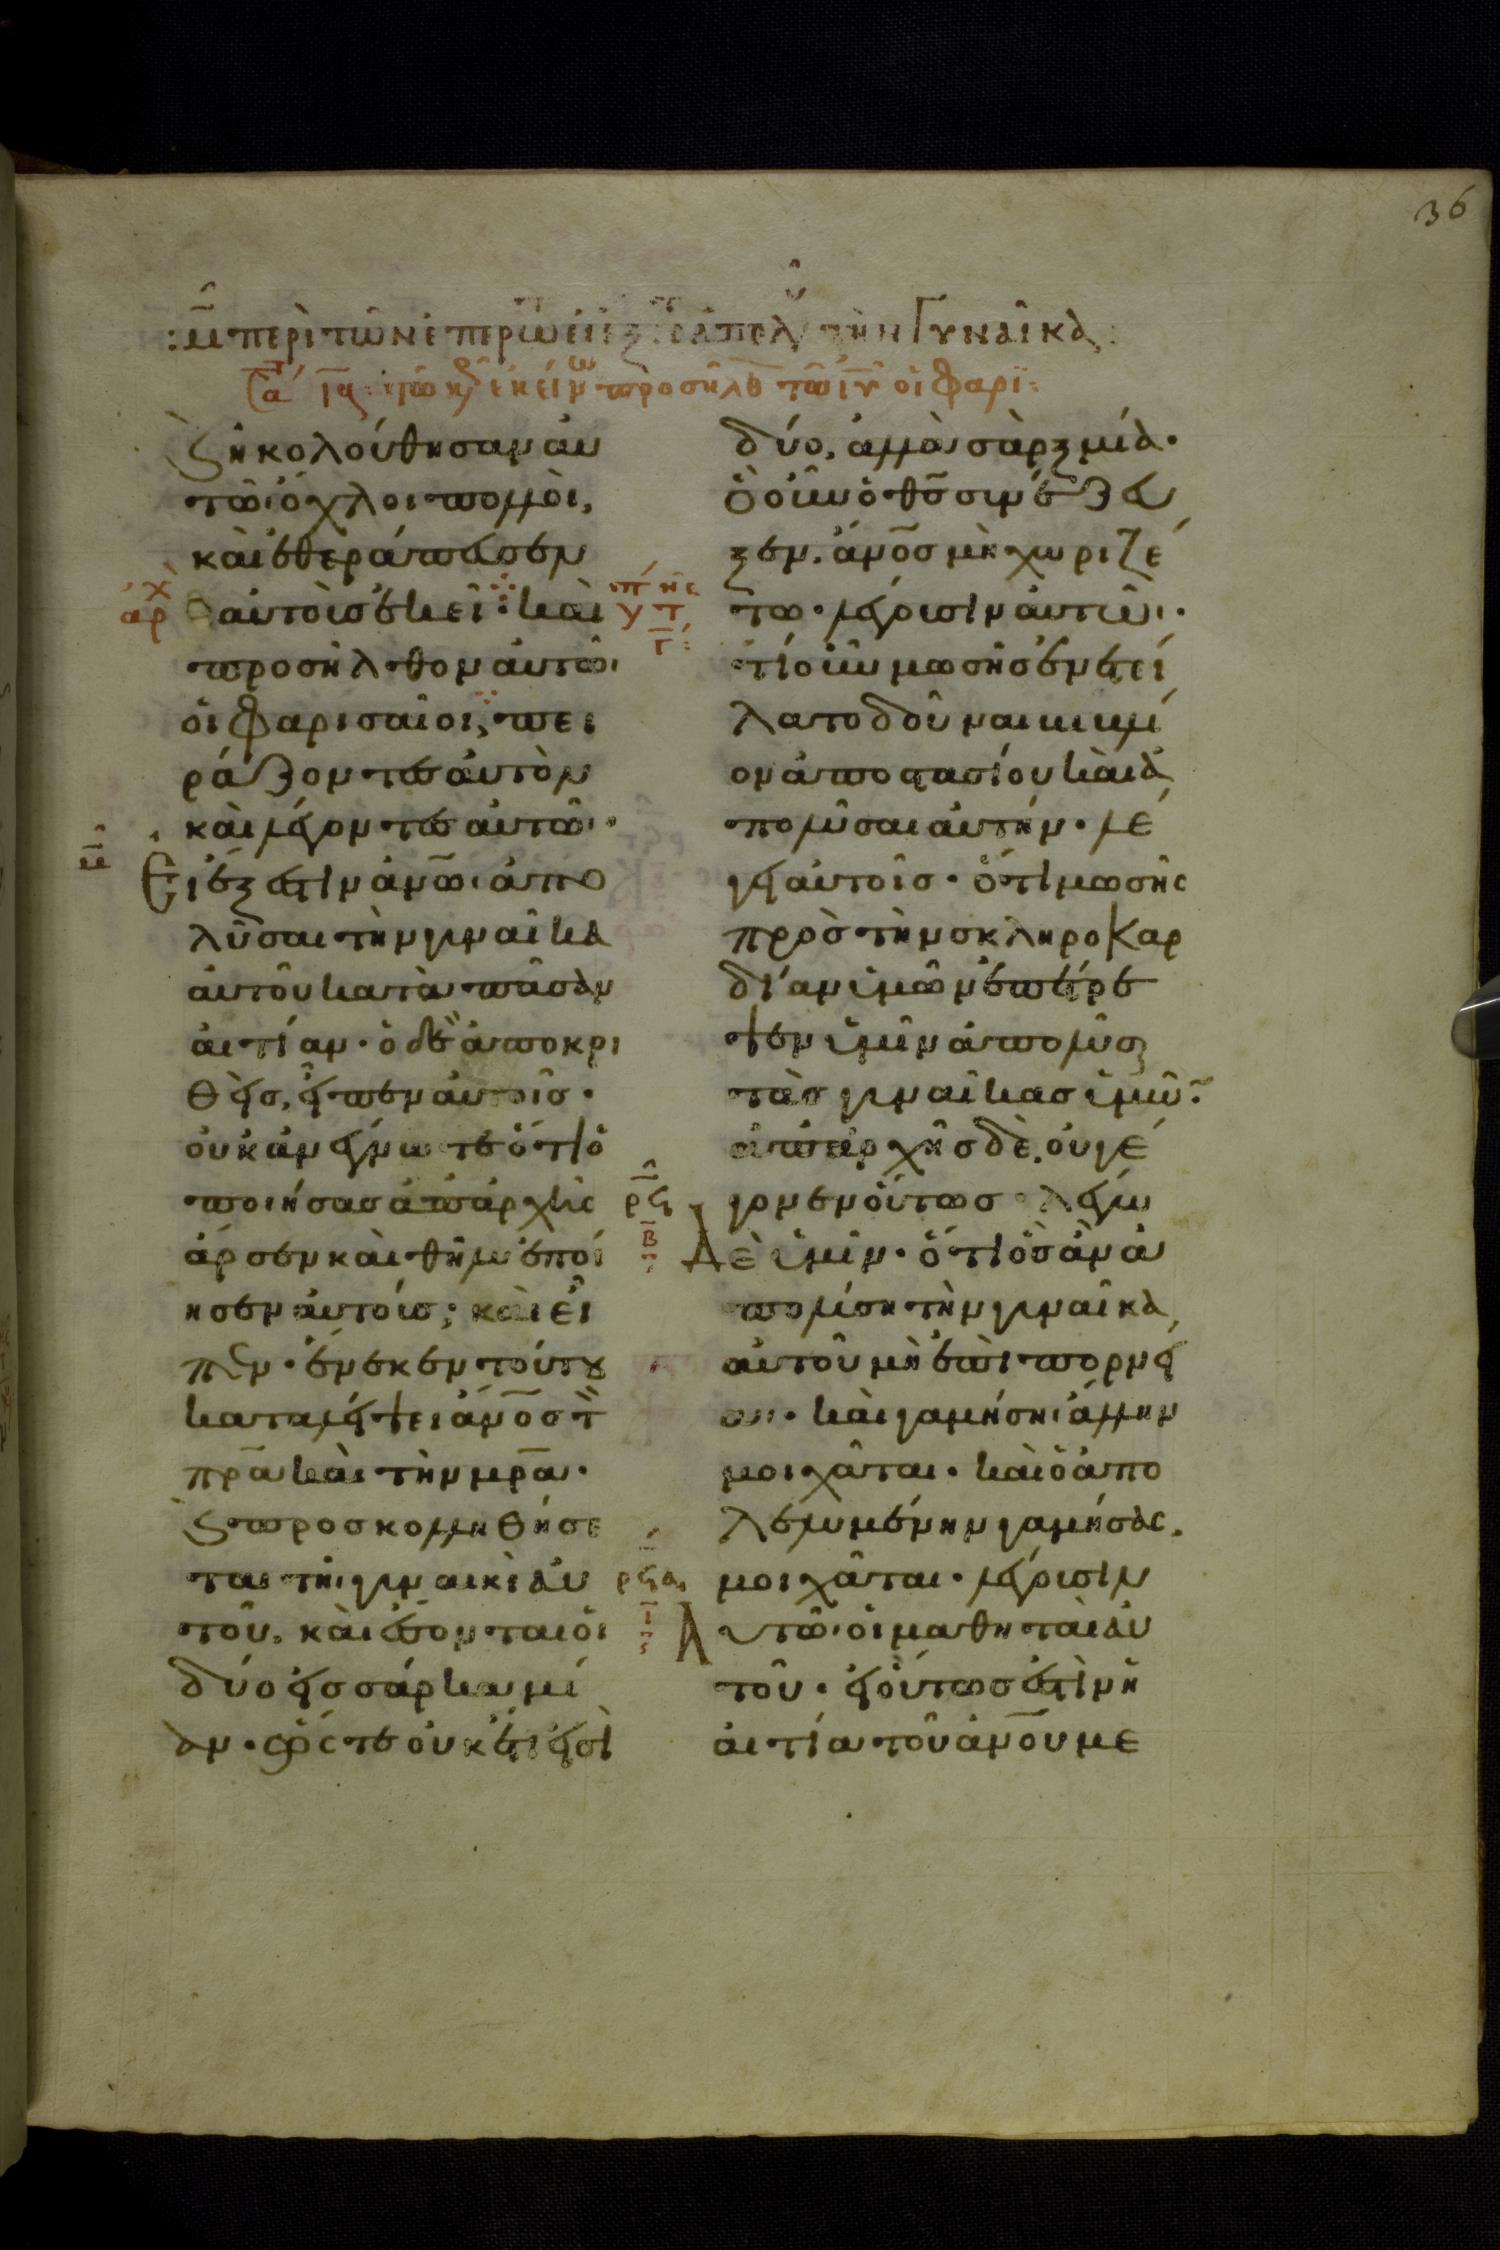 36
:μ̅ περὶ τῶν ἐπερω τὴν Γυναῖκα:
τῶ κ ἐκείν προσῆλθ τῶ ι̅υ̅ οἱ φαρι:
ϛ ἠκολούθησαν αυ
τῶι ὄχλοι πολλοὶ,
καὶ ἐθεράπευσεν
αὐτοὺσ ἐκεῖ: καὶ
αρχ
προσῆλθον αὐτῶι
οἱ φαρισαῖοι, πει
ράζοντεσ αὐτὸν
καὶ λέγοντεσ αὐτῶι·
Εἰ ἔξεστιν ἀν̅ω̅ι ἀπο
λῦσαι τὴν γυναῖκα
αὐτοῦ κατὰ πᾶσαν
αἰτίαν· ὁ δὲ ἀποκρι
θεὶσ, εἶπεν αὐτοῖσ·
οὐκ ἀνέγνωτε ὅτι ὁ
ποιήσασ ἀπαρχῆς
ἄρσεν καὶ θῆλυ ἐποί
ησεν αὐτούσ; καὶ εἶ
πεν· ἕνεκεν τούτου
καταλείψει ἀν̅ο̅σ τ̅
πρ̅α καὶ τὴν μρ̅α·
ϛ προσκολληθήσε
ται τῆι γυναικὶ αυ
τοῦ, καὶ ἔσονται οἱ
δύο εἰσ σάρκα μί
αν· ὥστε οὐκέτι εἰσὶ
δύο, ἀλλὰ σὰρξ μία·
ὃ οὖν ὁ θ̅σ̅ συνέζευ
ξεν, ἄν̅ο̅σ μὴ χωριζέ
τω· λέγουσιν αὐτῶι·
τί οὖν μωσῆσ ἐνετεί
λατο δοῦναι κι
ον ἀποστασίου καὶ ἀ
πολῦσαι αὐτήν· λέ
γει αὐτοῖσ· ὅτι μωσῆς
πρὸσ τὴν σκληροκαρ
δίαν ὑμῶν ἐπέτρε
ψεν ὑμῖν ἀπολῦσαι
τὰσ γυναῖκασ ὑμῶ̅·
ἀπαρχῆσ δὲ, οὐ γέ
ρϟ
γονεν οὕτωσ λέγω
Β
Δὲ ὑμῖν· ὅτι ὃσ ἂν ἀ
πολύση τὴν γυναῖκα
αὐτοῦ μὴ ἐπὶ πορνεί
αι· καὶ γαμήσηι ἄλλην
μοιχᾶται· καὶ ὁ ἀπο
λελυμένην γαμήσας,
ρϟα
μοιχᾶται· λέγουσιν
ι
Αυτῶι οἱ μαθηταὶ αυ
τοῦ· εἰ οὕτωσ ἐστὶν ἡ
αἰτία τοῦ ἀν̅ο̅υ με